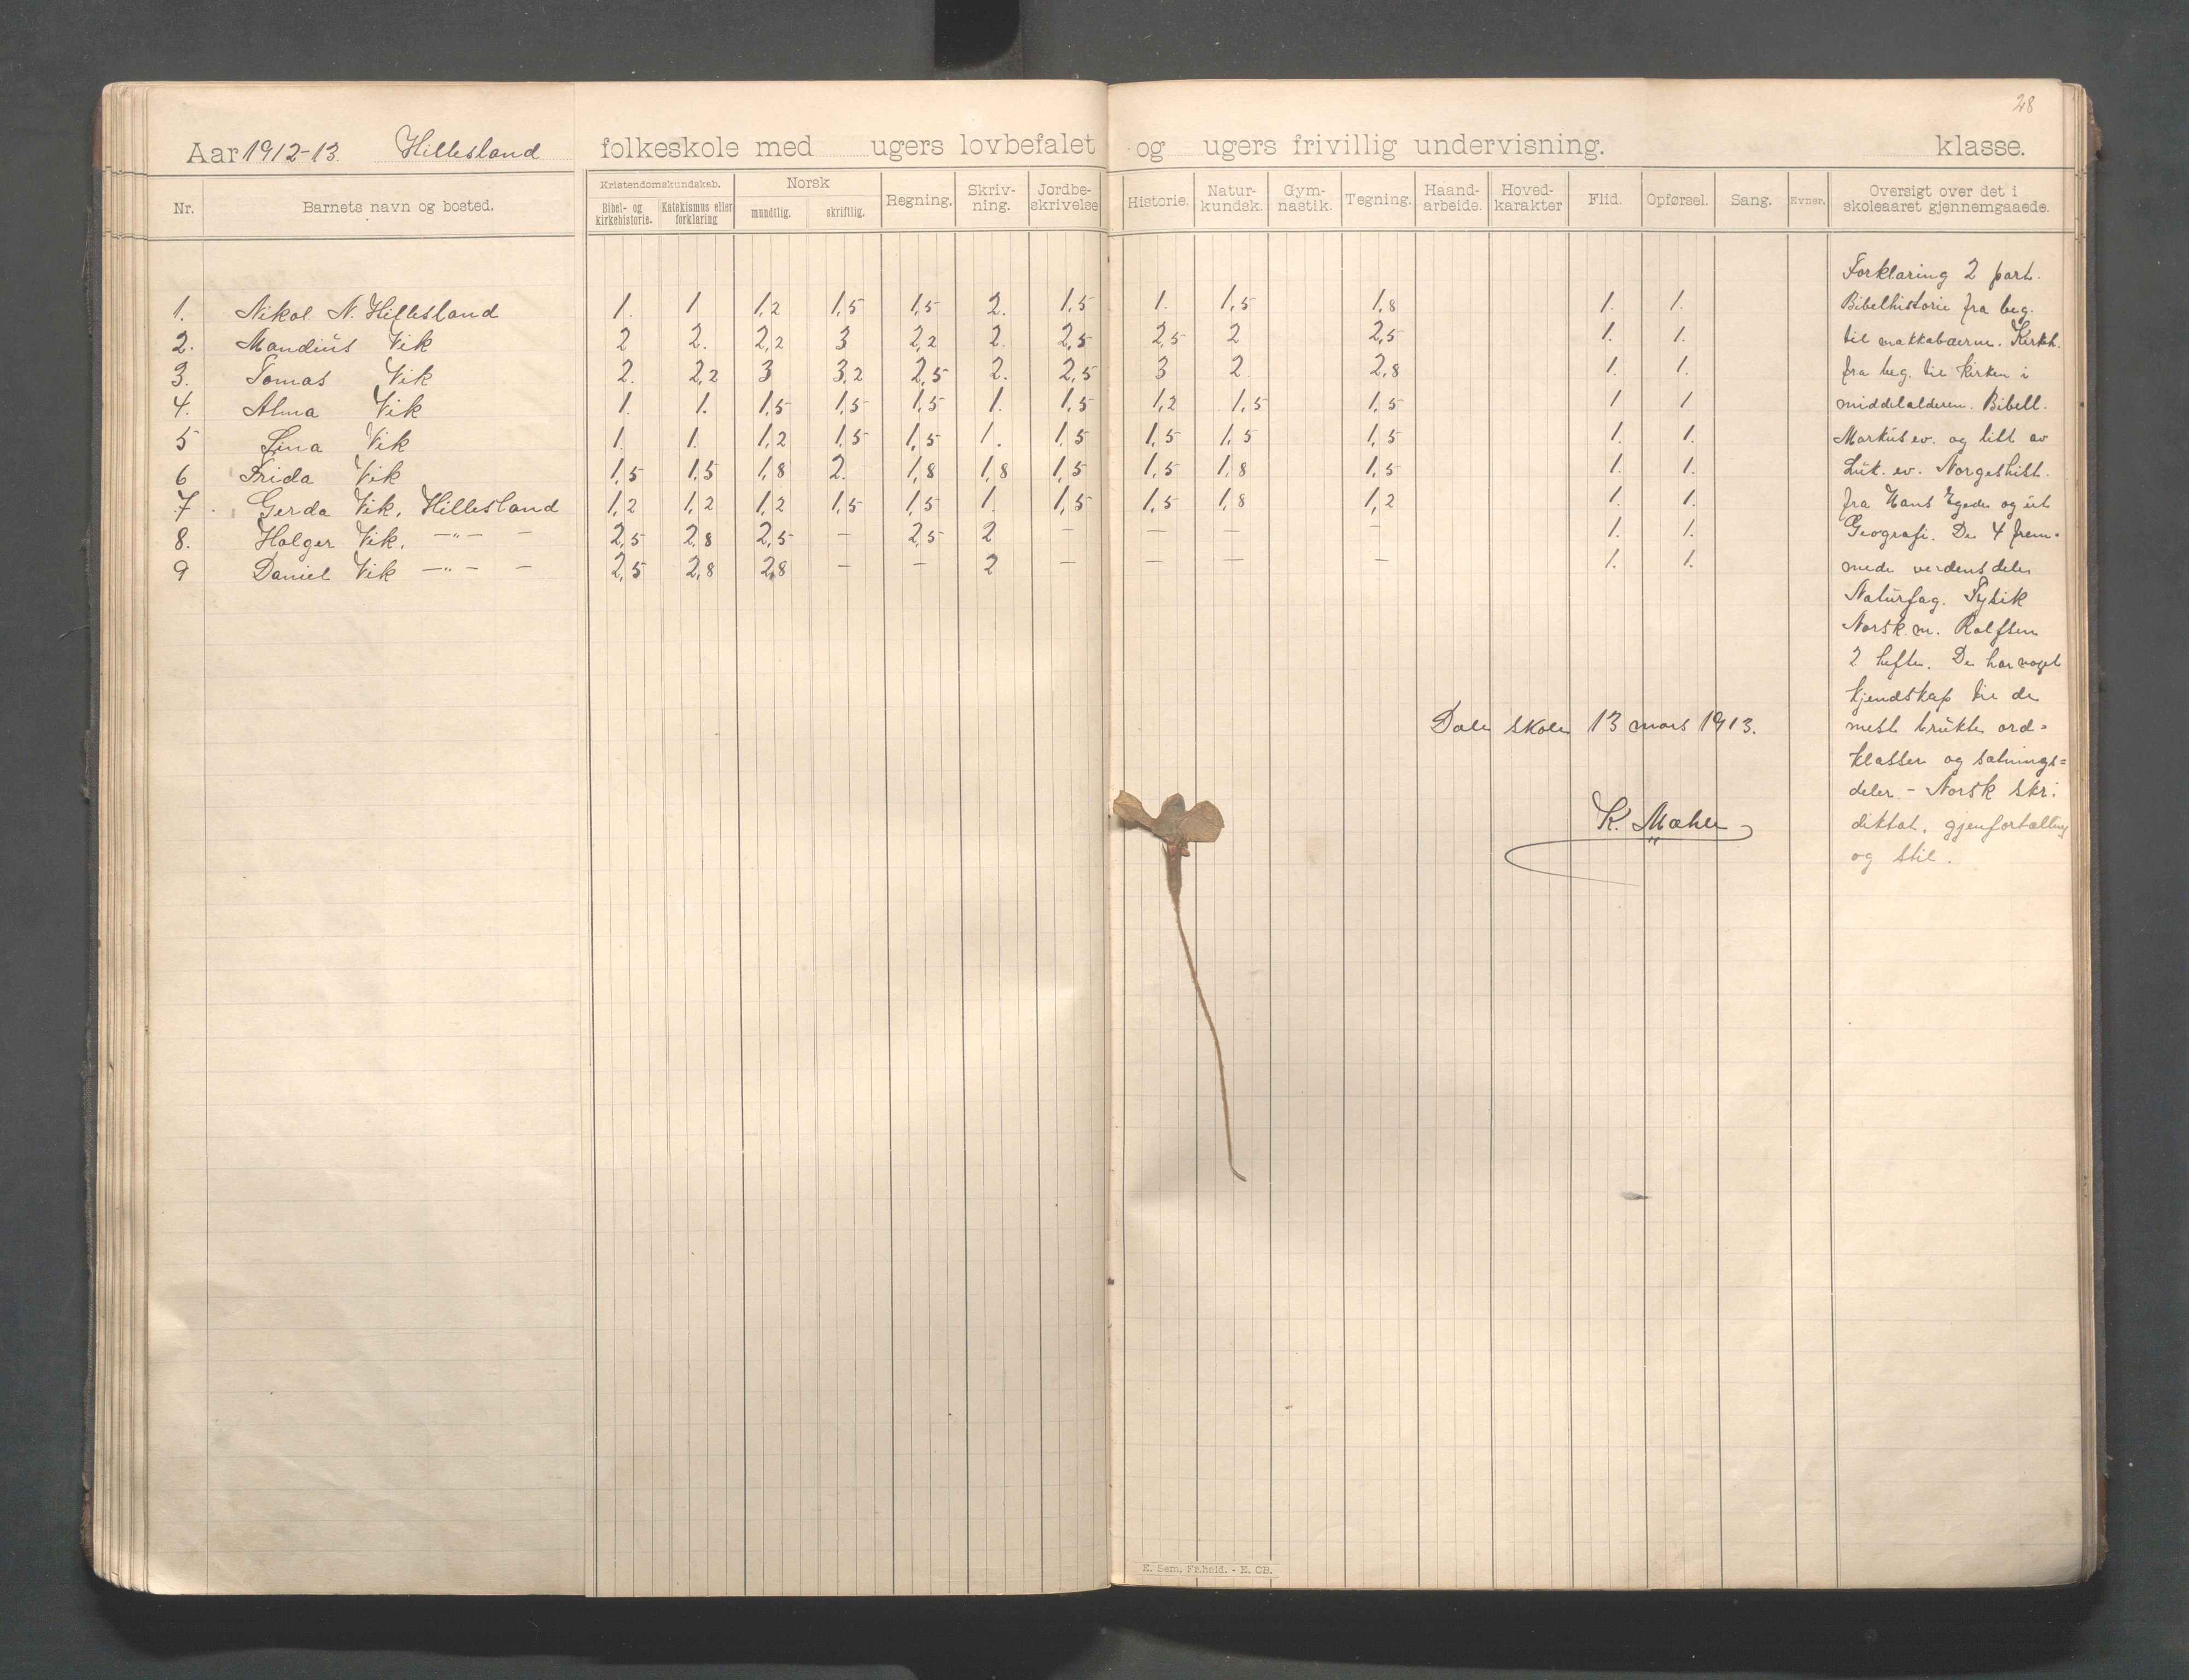 28
Aar 1912-13. Hillesland folkeskole med ugers lovbefalet og ugers frivillig undervisning. klasse.
Nr. Barnets navn og bosted. Kristendomskundskab. Bibel- og kirkehistorie. Katekismus eller forklaring Norsk mundtlig. skriftlig. Regning. Skriv-ning. Jordbe-skrivelse Historie. Natur-kundsk. Gym-nastik. Tegning. Haand-arbeide. Hoved-karakter Flid. Opførsel. Sang. Evner. Oversigt over det i skoleaaret gjennemgaaede.
Forklaring 2 part.
1. Nikol N. Hillesland 1. 1 1,2 1,5 1,5 2. 1,5 1. 1,5 1,8 1. 1. Bibelhistorie fra beg.
2. Mandius Vik 2 2. 2,2 3 2,2 2. 2,5 2,5 2 2,5 1. 1. til makkabæerne. Kirkh.
3. Tomas Vik 2. 2,2 3 3,2 2,5 2. 2,5 3 2 2,8 1. 1. fra beg. til kirken i
4. Alma Vik 1. 1. 1,5 1,5 1,5 1. 1,5 1,2 1,5 1,5 1 1 middelalderen. Bibell.
5 Lina Vik 1. 1. 1,2 1,5 1,5 1. 1,5 1,5 1,5 1,5 1. 1. Markus ev. og litt av
6 Frida Vik 1,5 1,5 1,8 2. 1,8 1,8 1,5 1,5 1,8 1,5 1. 1. Luk. ev. Norgeshist.
7. Gerda Vik, Hillesland 1,2 1,2 1,2 1,5 1,5 1. 1,5 1,5 1,8 1,2 1. 1. fra Hans Egede og ut
8. Holger Vik. —"— — 2,5 2,8 2,5 — 2,5 2 — — — — 1. 1. Geografi. De 4 frem-
9 Daniel Vik —"— — 2,5 2,8 2,8 — — 2 — — — — 1. 1. mede verdensdele
Naturfag. Fysik
Norsk m. Rolfsen
2 hefte. De har noget
kjendskap til de
Dale skole 13 mars 1913. mest brukte ord=
klasser og sætnings=
deler. - Norsk skr.
K. Mæhle diktat, gjenfortælling
og stil.
E. Sem, Fr.hald. - E. CB.